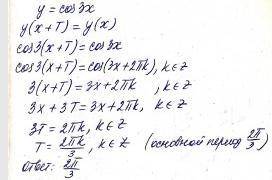 y = cos3x
y(x+T) = y(x)
cos3(x+T) = cos3x
cos3(x+T) = cos(3x+2πk), k∈Z
3(x+T) = 3x+2πk , k∈Z
3x+3T = 3x+2πk, k∈Z
3T = 2πk, k∈Z
T = 2πk/3, k∈Z (основной период 2π/3)
ответ: 2π/3